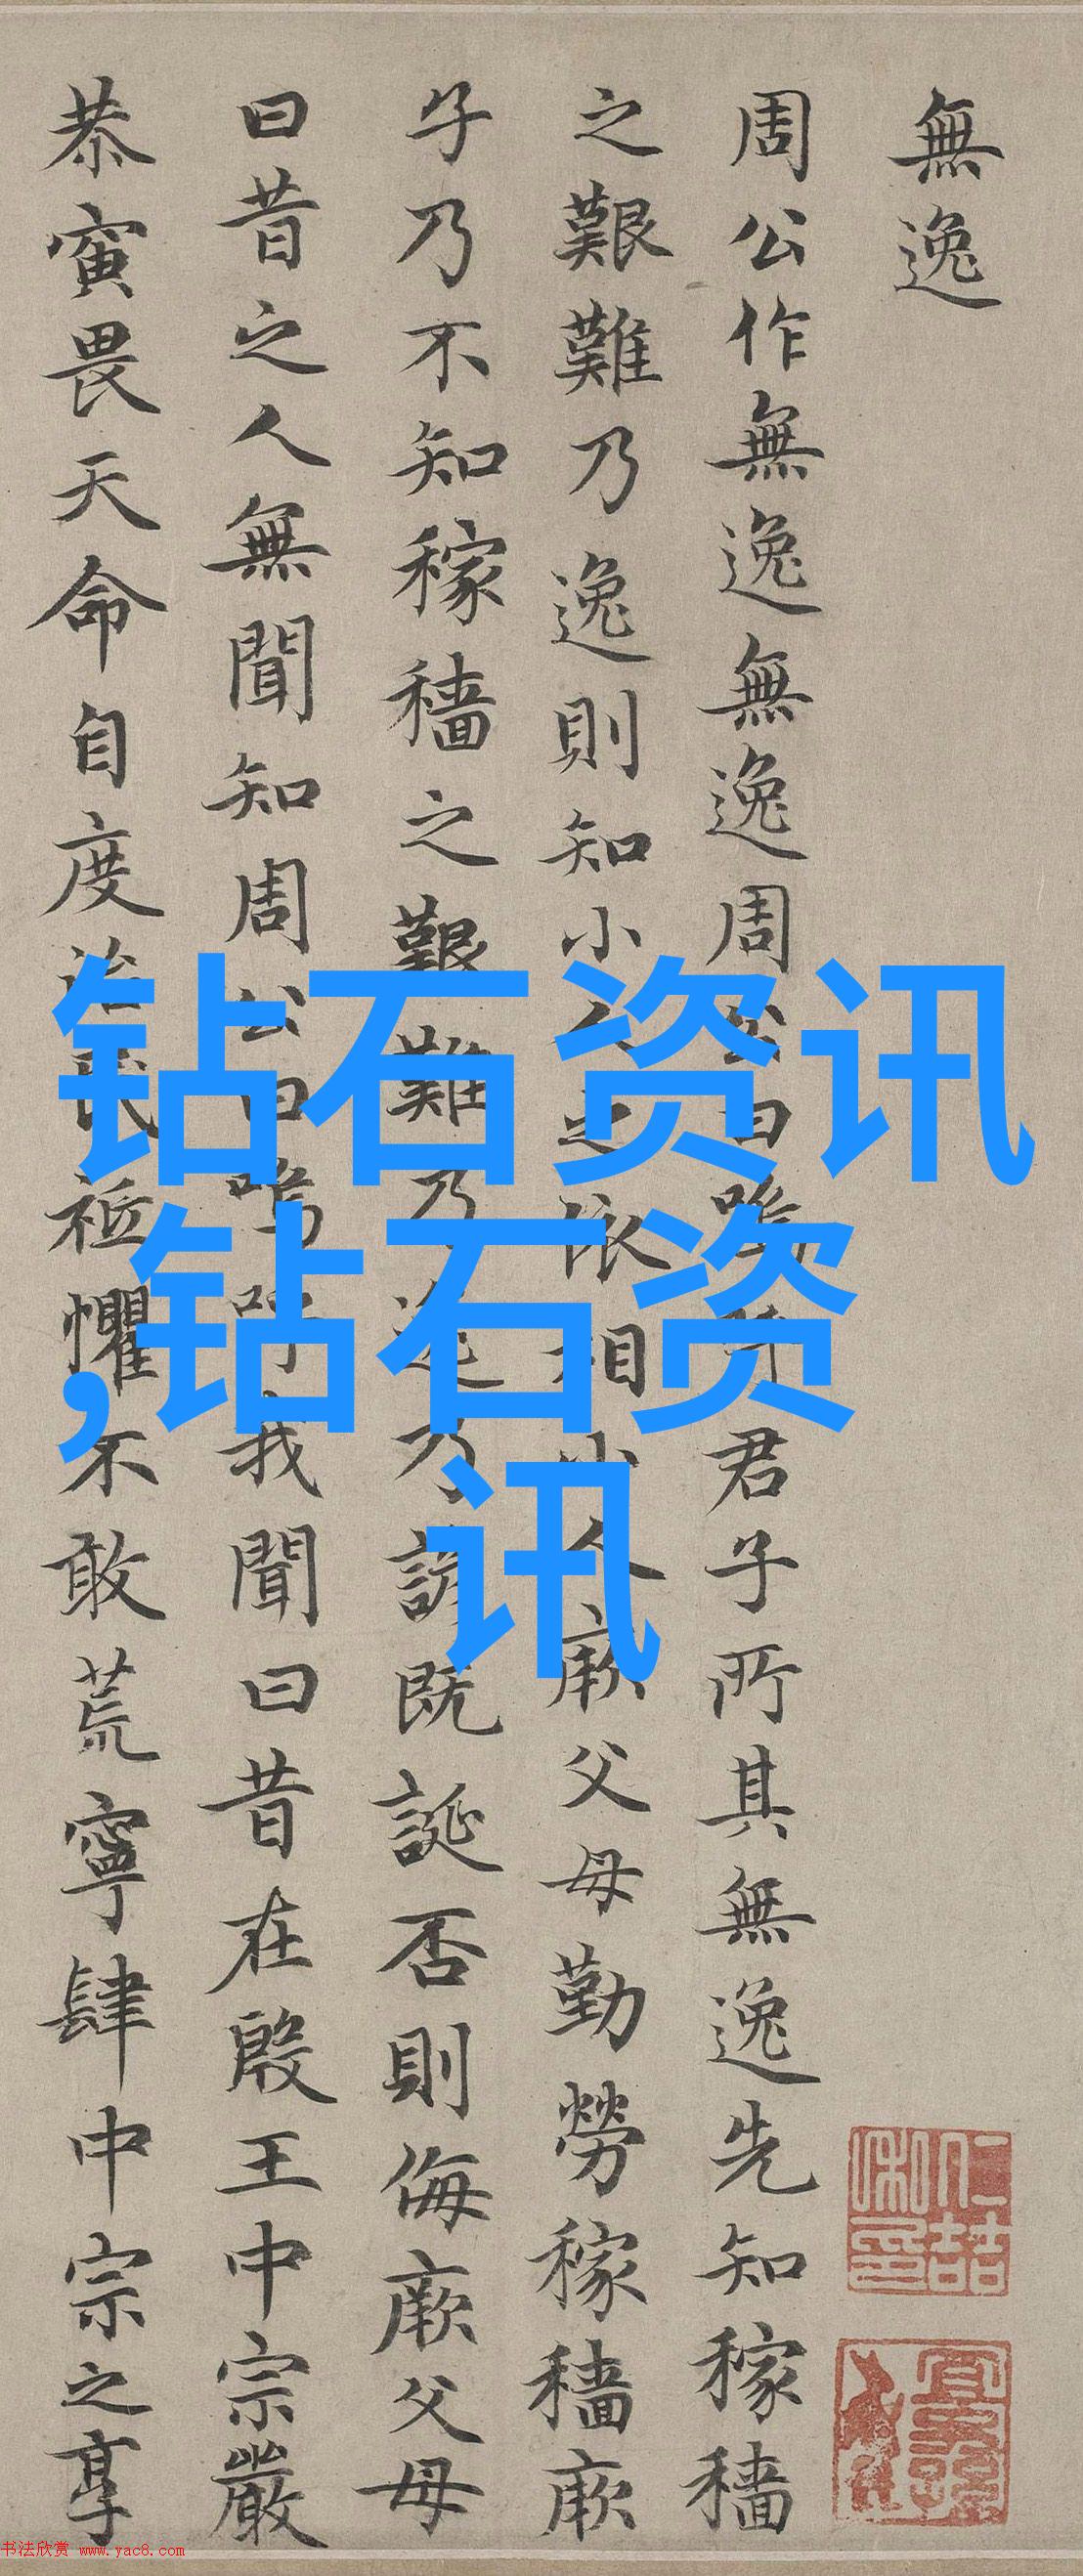 無逸
周公作無逸無逸周公曰嗚呼君子所其無逸先知稼穡
之艱難乃逸則知小人之依相小人厥父母勤勞稼穡厥
子乃不知稼穡之艱難乃逸乃諺既誕否則侮厥父母
曰昔之人無聞知周公曰嗚呼我聞曰昔在殷王中宗嚴
恭寅畏天命自度治民祗懼不敢荒寧肆中宗之享
钻石资讯
,钻石资
讯
书法欣赏 www.yac8.com